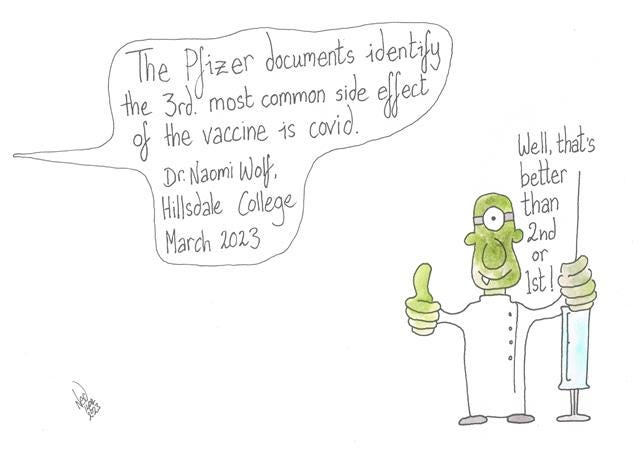 The Pfizer documents identify
the 3rd. most common side effect
of the vaccine is covid.
Dr. Naomi Wolf,
Hillsdale College
March 2023
Well, that's
better
than
2nd
or
1st!
2023